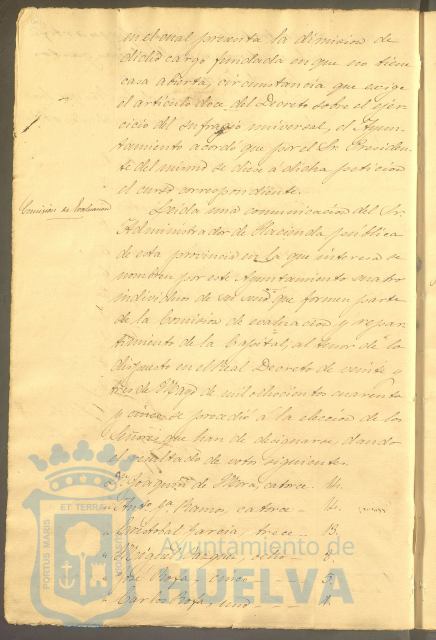 en el cual presenta la dimision de
dicho cargo fundada en que no tiene
casa abierta, circunstancia que exige
el articulo doce del Decreto sobre el ejer-
cicio del sufragio universal, el Ayun-
tamiento acordó que por el Sr. Presiden-
te del mismo se diese á dicha peticion
el curso correspondiente.
Comision de Evaluacion
Leida una comunicacion del Sr.
Administrador de Hacienda publica
de esta provincia en la que interesa se
nombren por este Ayuntamiento cuatro
individuos de su que formen parte
de la Comision de evaluacion y repar-
timiento de la Capital, al tenor de lo
dispuesto en el Real Decreto de veinte y
tres de Mayo de mil ochocientos cuarenta
y cinco se procedió á la eleccion de los
Señores que han de designarse, dando
el resultado de votos siguiente.
Dn. Joaquin de Mora, catorce. 14.
" Anto. Ga. Ramos, catorce - 14.
" Cristobal Garcia, trece - 13.
" Miguel ocho 8.
" José Rofa, cinco - 5.
" Carlos Rofa, uno - - - 1.
PORTUS MARIS ET TERRAE
Ayuntamiento de
HUELVA